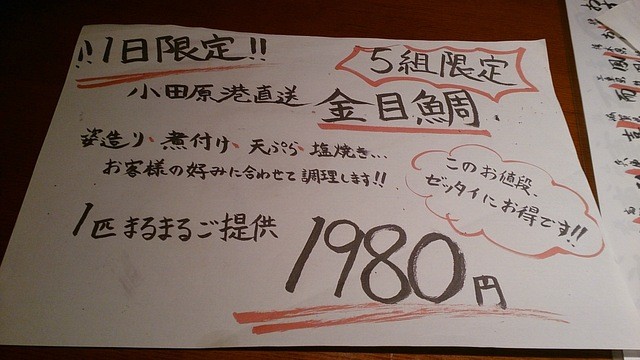 !!1日限定!!
5組限定
小田原港直送 金目鯛
姿造り、煮付け、天ぷら、塩焼き…
お客様の好みに合わせて調理します!!
このお値段、
ゼッタイにお得です!!
1匹まるまるご提供
1980円